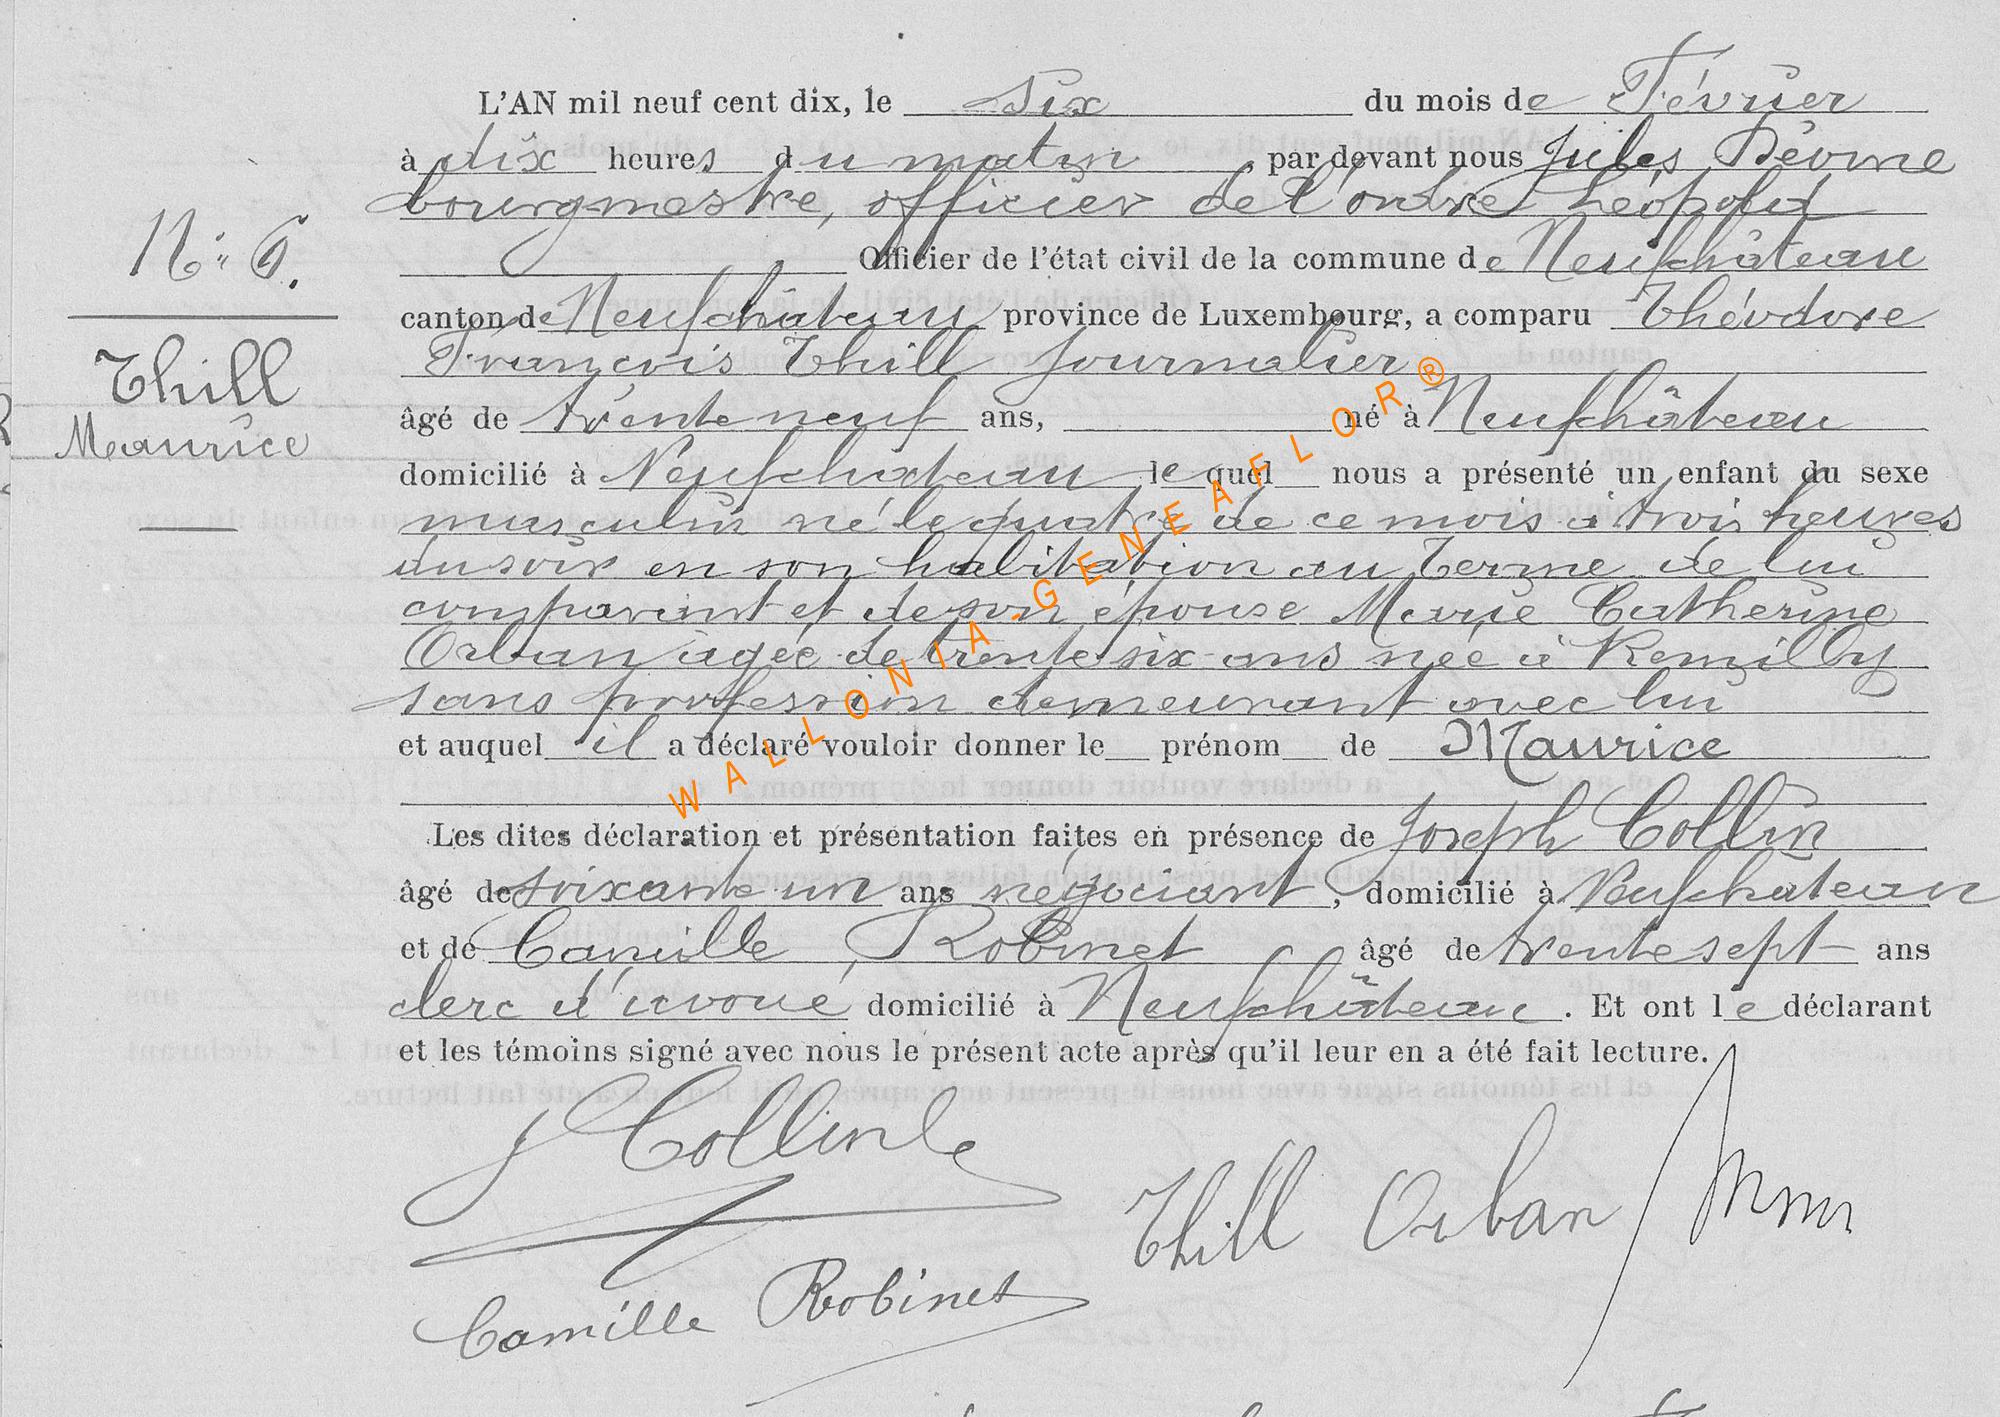 L'AN mil neuf cent dix, le six du mois de Février
à dix heures du matin, par devant nous Jules
bourgmestre, officier de l'ordre Léopold
Officier de l'état civil de la commune de Neufchâteau
N° 6.
canton de Neufchâteau province de Luxembourg, a comparu Théodore
Thill
Maurice
François Thill Journalier
âgé de trente neuf ans, né à Neufchâteau
domicilié à Neufchateau lequel nous a présenté un enfant du sexe
masculin né le quatre de ce mois à trois heures
du soir en son habitation au Terme de lui
comparant et de son épouse Marie Catherine
Orban agée de trente six ans née à Remilly
sans profession demeurant avec lui
et auquel il a déclaré vouloir donner le prénom de Maurice
Les dites déclaration et présentation faites en présence de Joseph Collin
âgé de soixante un ans négociant, domicilié à Neufchâteau
et de Camille Robinet âgé de trente sept ans
clerc d'avoué domicilié à Neufchâteau. Et ont le déclarant
et les témoins signé avec nous le présent acte après qu'il leur en a été fait lecture.
J Collin
Thill Orban
Camille Robinet
WALLONIA-GENEAFLOR®